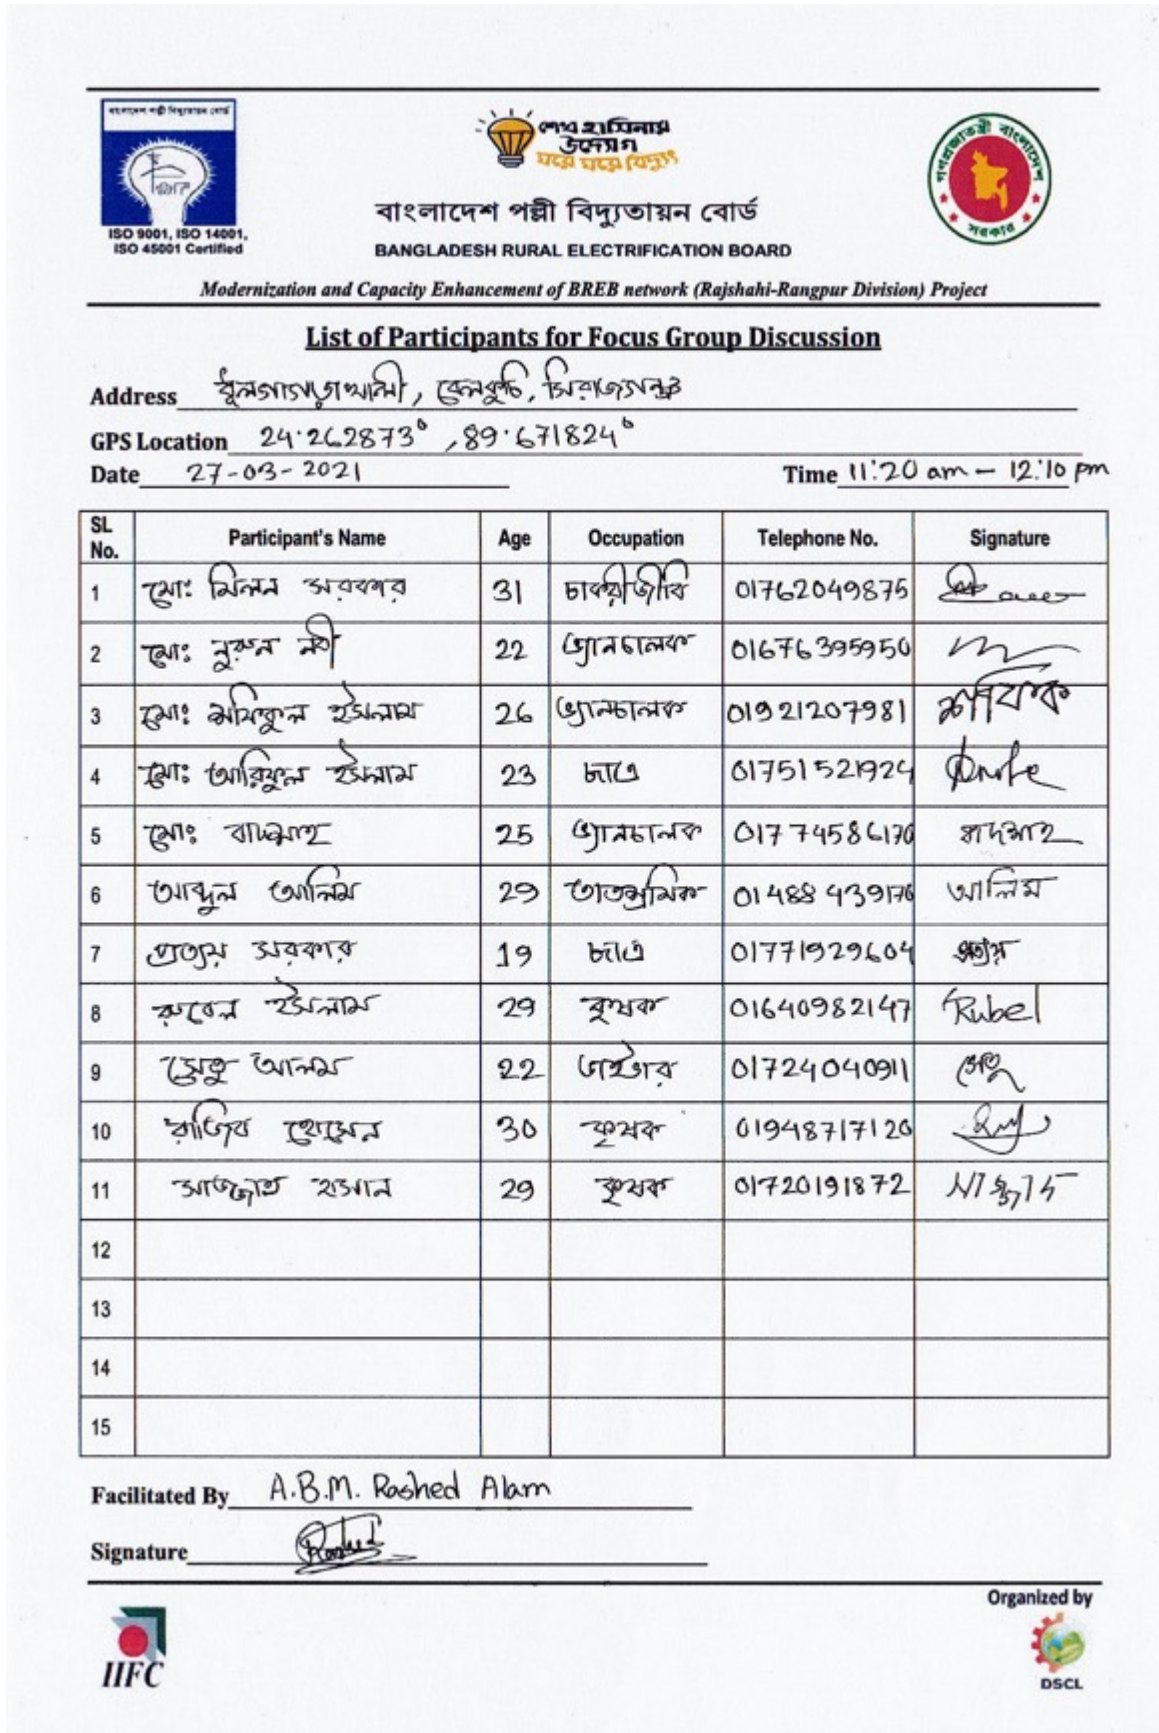 বাংলাদেশ পল্লী বিদ্যুতায়ন বোর্ড
ISO 9001, ISO 14001,
ISO 45001 Certified
শেখ হাসিনার
উদ্যোগ
ঘরে ঘরে বিদ্যুৎ
গণপ্রজাতন্ত্রী বাংলাদেশ
সরকার
বাংলাদেশ পল্লী বিদ্যুতায়ন বোর্ড
BANGLADESH RURAL ELECTRIFICATION BOARD
Modernization and Capacity Enhancement of BREB network (Rajshahi-Rangpur Division) Project
List of Participants for Focus Group Discussion
Address বেলকুচি, সিরাজগঞ্জ
GPS Location 24.262873°, 89.671824°
Date 27-03-2021 Time 11:20 am - 12:10 pm
SL No. Participant's Name Age Occupation Telephone No. Signature
1 মোঃ মিলন সরকার 31 চাকরীজীবি 01762049875
2 মোঃ নুরুন নবী 22 ভ্যানচালক 01676395950
3 মোঃ শফিকুল ইসলাম 26 ভ্যানচালক 01921207981 শফিকুল
4 মোঃ আরিফুল ইসলাম 23 ছাত্র 01751521924
5 মোঃ বাদশাহ 25 ভ্যানচালক 01774586170 বাদশাহ
6 আব্দুল আলিম 29 তাতশ্রমিক 01488439176 আলিম
7 প্রত্যয় সরকার 19 ছাত্র 01771929604 প্রত্যয়
8 রুবেল ইসলাম 29 কৃষক 01640982147 Rubel
9 সেতু আলম 22 01724040911 সেতু
10 রাজিব হোসেন 30 কৃষক 01948717120
11 সাজ্জাত হাসান 29 কৃষক 01720191872
12
13
14
15
Facilitated By A.B.M. Rashed Alam
Signature Rashed
Organized by
IIFC
DSCL